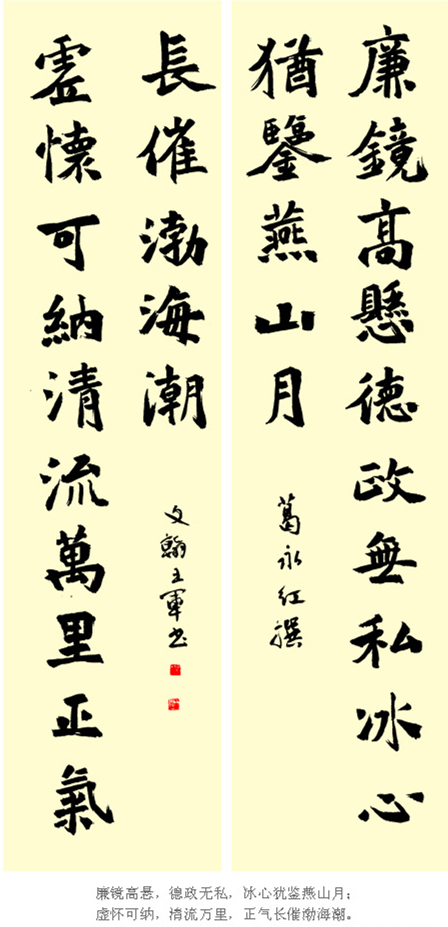 廉鏡高懸德政無私冰心
猶鑒燕山月
葛永红撰
虛懷可納清流萬里正氣
長催渤海潮
文翰王軍书
廉镜高悬，德政无私，冰心犹鉴燕山月；
虚怀可纳，清流万里，正气长催渤海潮。